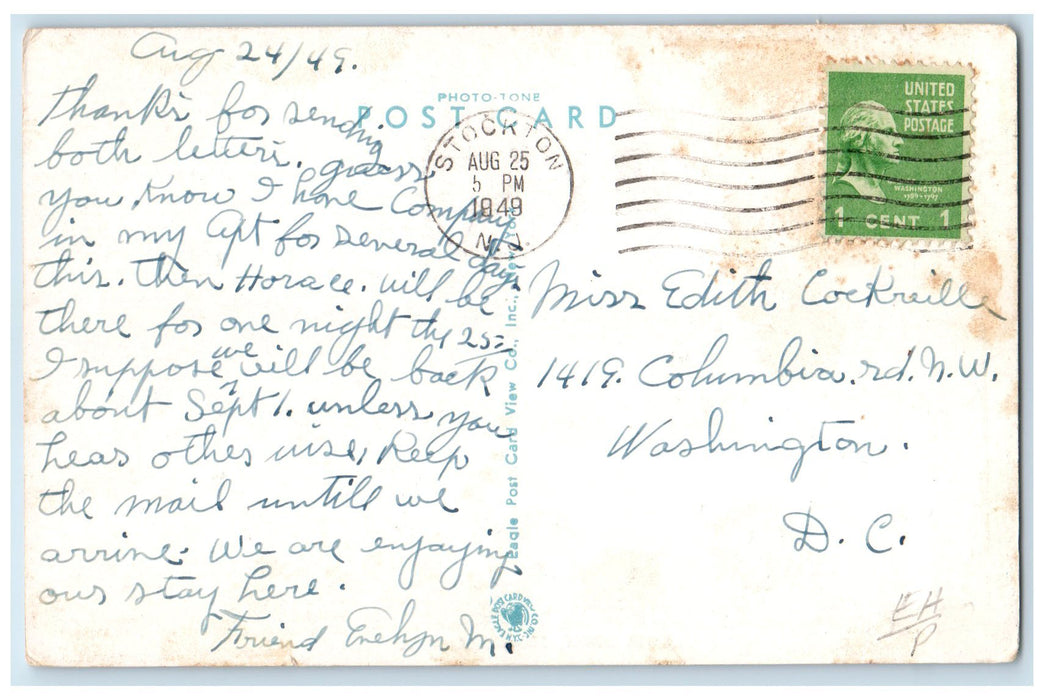 Aug 24/49.
Thanks for sending
both letters. guess
you know I have Company
in my Apt for several days
this. then Horace. will be
there for one night the 25=
I suppose we will be back
about Sept 1. unless you
hear other wise, Keep
the mail untill we
arrive. We are enjoying
our stay here.
Friend Evelyn M.
PHOTO-TONE
POST CARD
Eagle Post Card View Co., Inc.,
STOCKTON
AUG 25
5 PM
1949
N.J.
UNITED
STATES
POSTAGE
WASHINGTON
1 CENT 1
Miss Edith Cockreille
1419. Columbia. rd. N.W.
Washington.
D. C.
EH
P